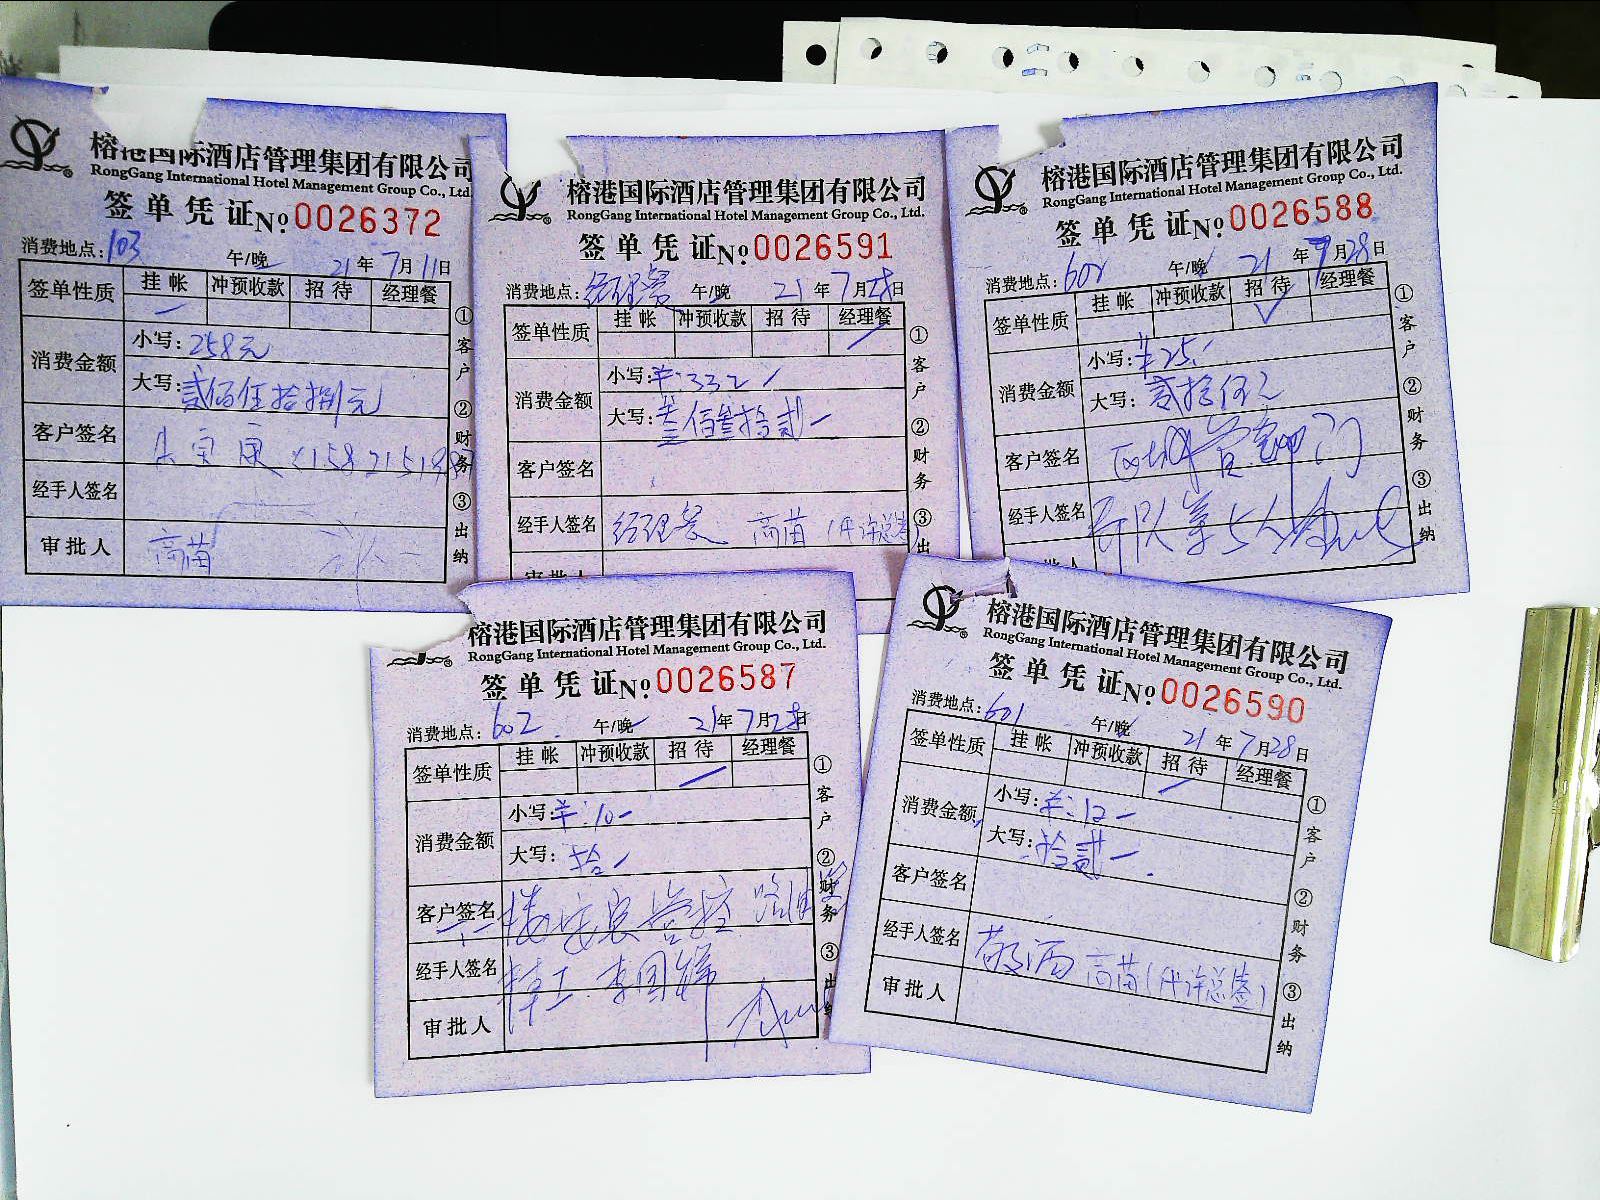 榕港国际酒店管理集团有限公司
RongGang International Hotel Management Group Co., Ltd.
签单凭证 No. 0026372
消费地点: 103 午/晚 21年7月11日
签单性质 挂帐 冲预收款 招待 经理餐
消费金额 小写: 258元
大写: 贰佰伍拾捌元
客户签名
经手人签名
审批人 高苗
①客户 ②财务 ③出纳
榕港国际酒店管理集团有限公司
RongGang International Hotel Management Group Co., Ltd.
签单凭证 No. 0026591
消费地点: 经理餐 午/晚 21年7月28日
签单性质 挂帐 冲预收款 招待 经理餐
消费金额 小写: ¥:332
大写: 叁佰叁拾贰
客户签名
经手人签名 经理餐 高苗(代许总签)
审批人
①客户 ②财务 ③出
榕港国际酒店管理集团有限公司
RongGang International Hotel Management Group Co., Ltd.
签单凭证 No. 0026588
消费地点: 602 午/晚 21年7月28日
签单性质 挂帐 冲预收款 招待 经理餐
消费金额 小写: ¥25
大写: 贰拾伍
客户签名
经手人签名
①客户 ②财务 ③出纳
榕港国际酒店管理集团有限公司
RongGang International Hotel Management Group Co., Ltd.
签单凭证 No. 0026587
消费地点: 602 午/晚 21年7月28日
签单性质 挂帐 冲预收款 招待 经理餐
消费金额 小写: ¥:10
大写: 拾
客户签名
经手人签名 李国锋
审批人
①客户 ②财务 ③出纳
榕港国际酒店管理集团有限公司
RongGang International Hotel Management Group Co., Ltd.
签单凭证 No. 0026590
消费地点: 601 午/晚 21年7月28日
签单性质 挂帐 冲预收款 招待 经理餐
消费金额 小写: ¥:12
大写: 拾贰
客户签名
经手人签名 敬酒 高苗(代许总签)
审批人
①客户 ②财务 ③出纳